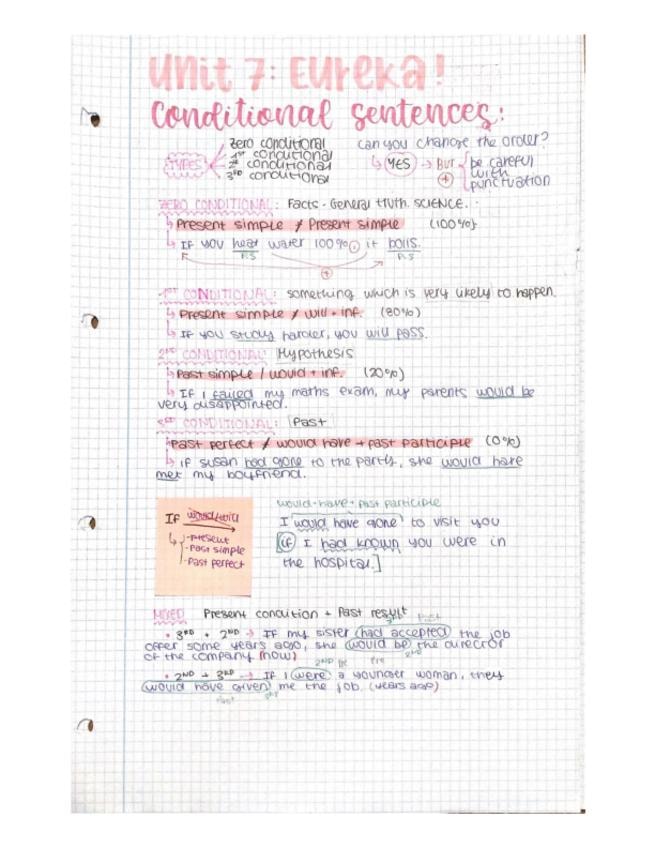 Unit 7: Eureka!
Conditional sentences:
TYPES
zero conditional
1st conditional
2nd conditional
3RD conditional
can you change the order?
YES → BUT
be careful
with
punctuation
+
ZERO CONDITIONAL: Facts - General truth. SCIENCE.
Present simple / Present simple (100%)
IF you heat water 100%, it boils.
P.S P.S
+
1ST CONDITIONAL: something which is very likely to happen.
Present simple / will + inf. (80%)
IF you study harder, you will pass.
2ND CONDITIONAL: Hypothesis
Past simple / would + inf. (20%)
If I failed my maths exam, my parents would be
very disappointed.
3RD CONDITIONAL: Past
Past perfect / would have + past participle (0%)
if susan had gone to the party, she would have
met my boyfriend.
IF would/will
-present
-Past simple
-Past perfect
would + have + past participle
I would have gone to visit you
if I had known you were in
the hospital.]
MIXED Present condition + Past result
• 3RD + 2ND → IF my sister had accepted the job
offer some years ago, she would be the director
of the company (now)
• 2ND + 3RD → IF I were a younger woman, they
would have given me the job. (years ago)